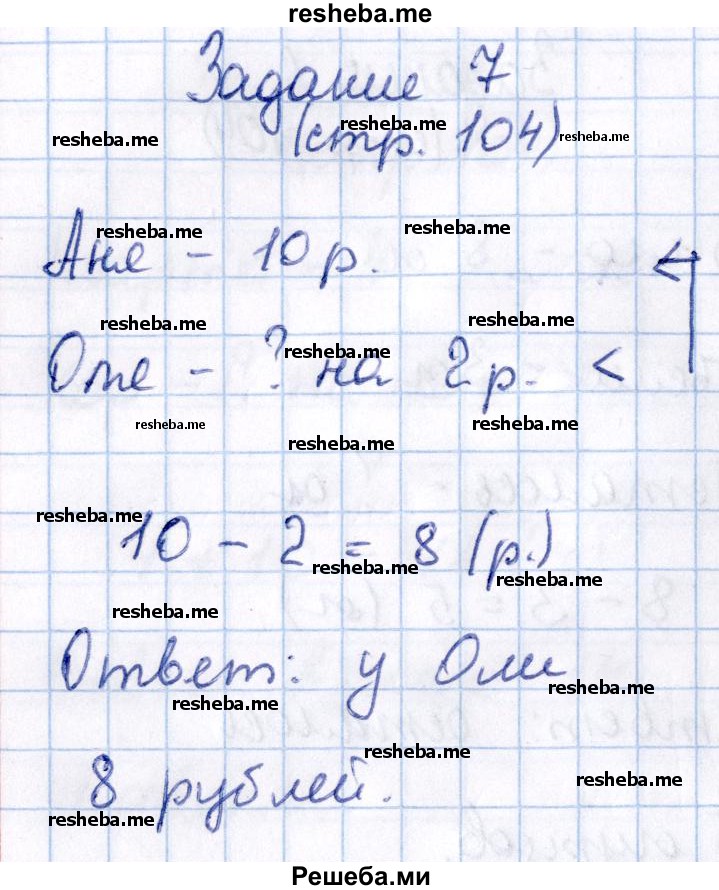 resheba.me
Задание 7
resheba.me resheba.me resheba.me
(стр. 104)
resheba.me resheba.me
Аня - 10 р. <
resheba.me resheba.me resheba.me
Оля - ? на 2 р. <
resheba.me resheba.me
resheba.me
resheba.me
10 - 2 = 8 (р.)
resheba.me resheba.me
resheba.me
Ответ: у Оли
resheba.me resheba.me
resheba.me
8 рублей.
resheba.me resheba.me
Решеба.ми